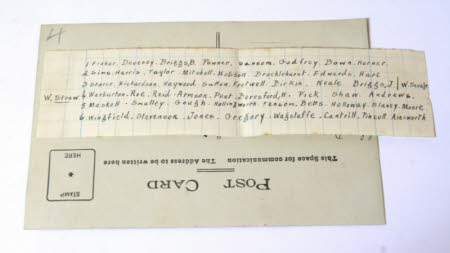 4
1 Fisher. Deveney. Briggs, B. Pouner. Sansom. Godfrey. Bown. Horner.
2 Sims. Harris. Taylor. Mitchell. Hobson. Brocklehurst. Edwards. Hart
3 Storer. Richardson. Haywood. Sutton. Fretwell. Dickin. Neale Briggs, J. W. Straff
W. Straw 4 Warburton. Roe. Reid. Armson. Post. Beresford, H. Pick. Shaw. Andrews.
5 Maskell. Smalley. Gough. Hollingworth. Fensom. Betts. Holloway. Blanty. Moore
6 Wingfield. Stevenson. Jones. Gregory. Wagstaffe. Cantrill. Ainsworth
This Space for communication The Address to be written here
POST CARD
STAMP
HERE